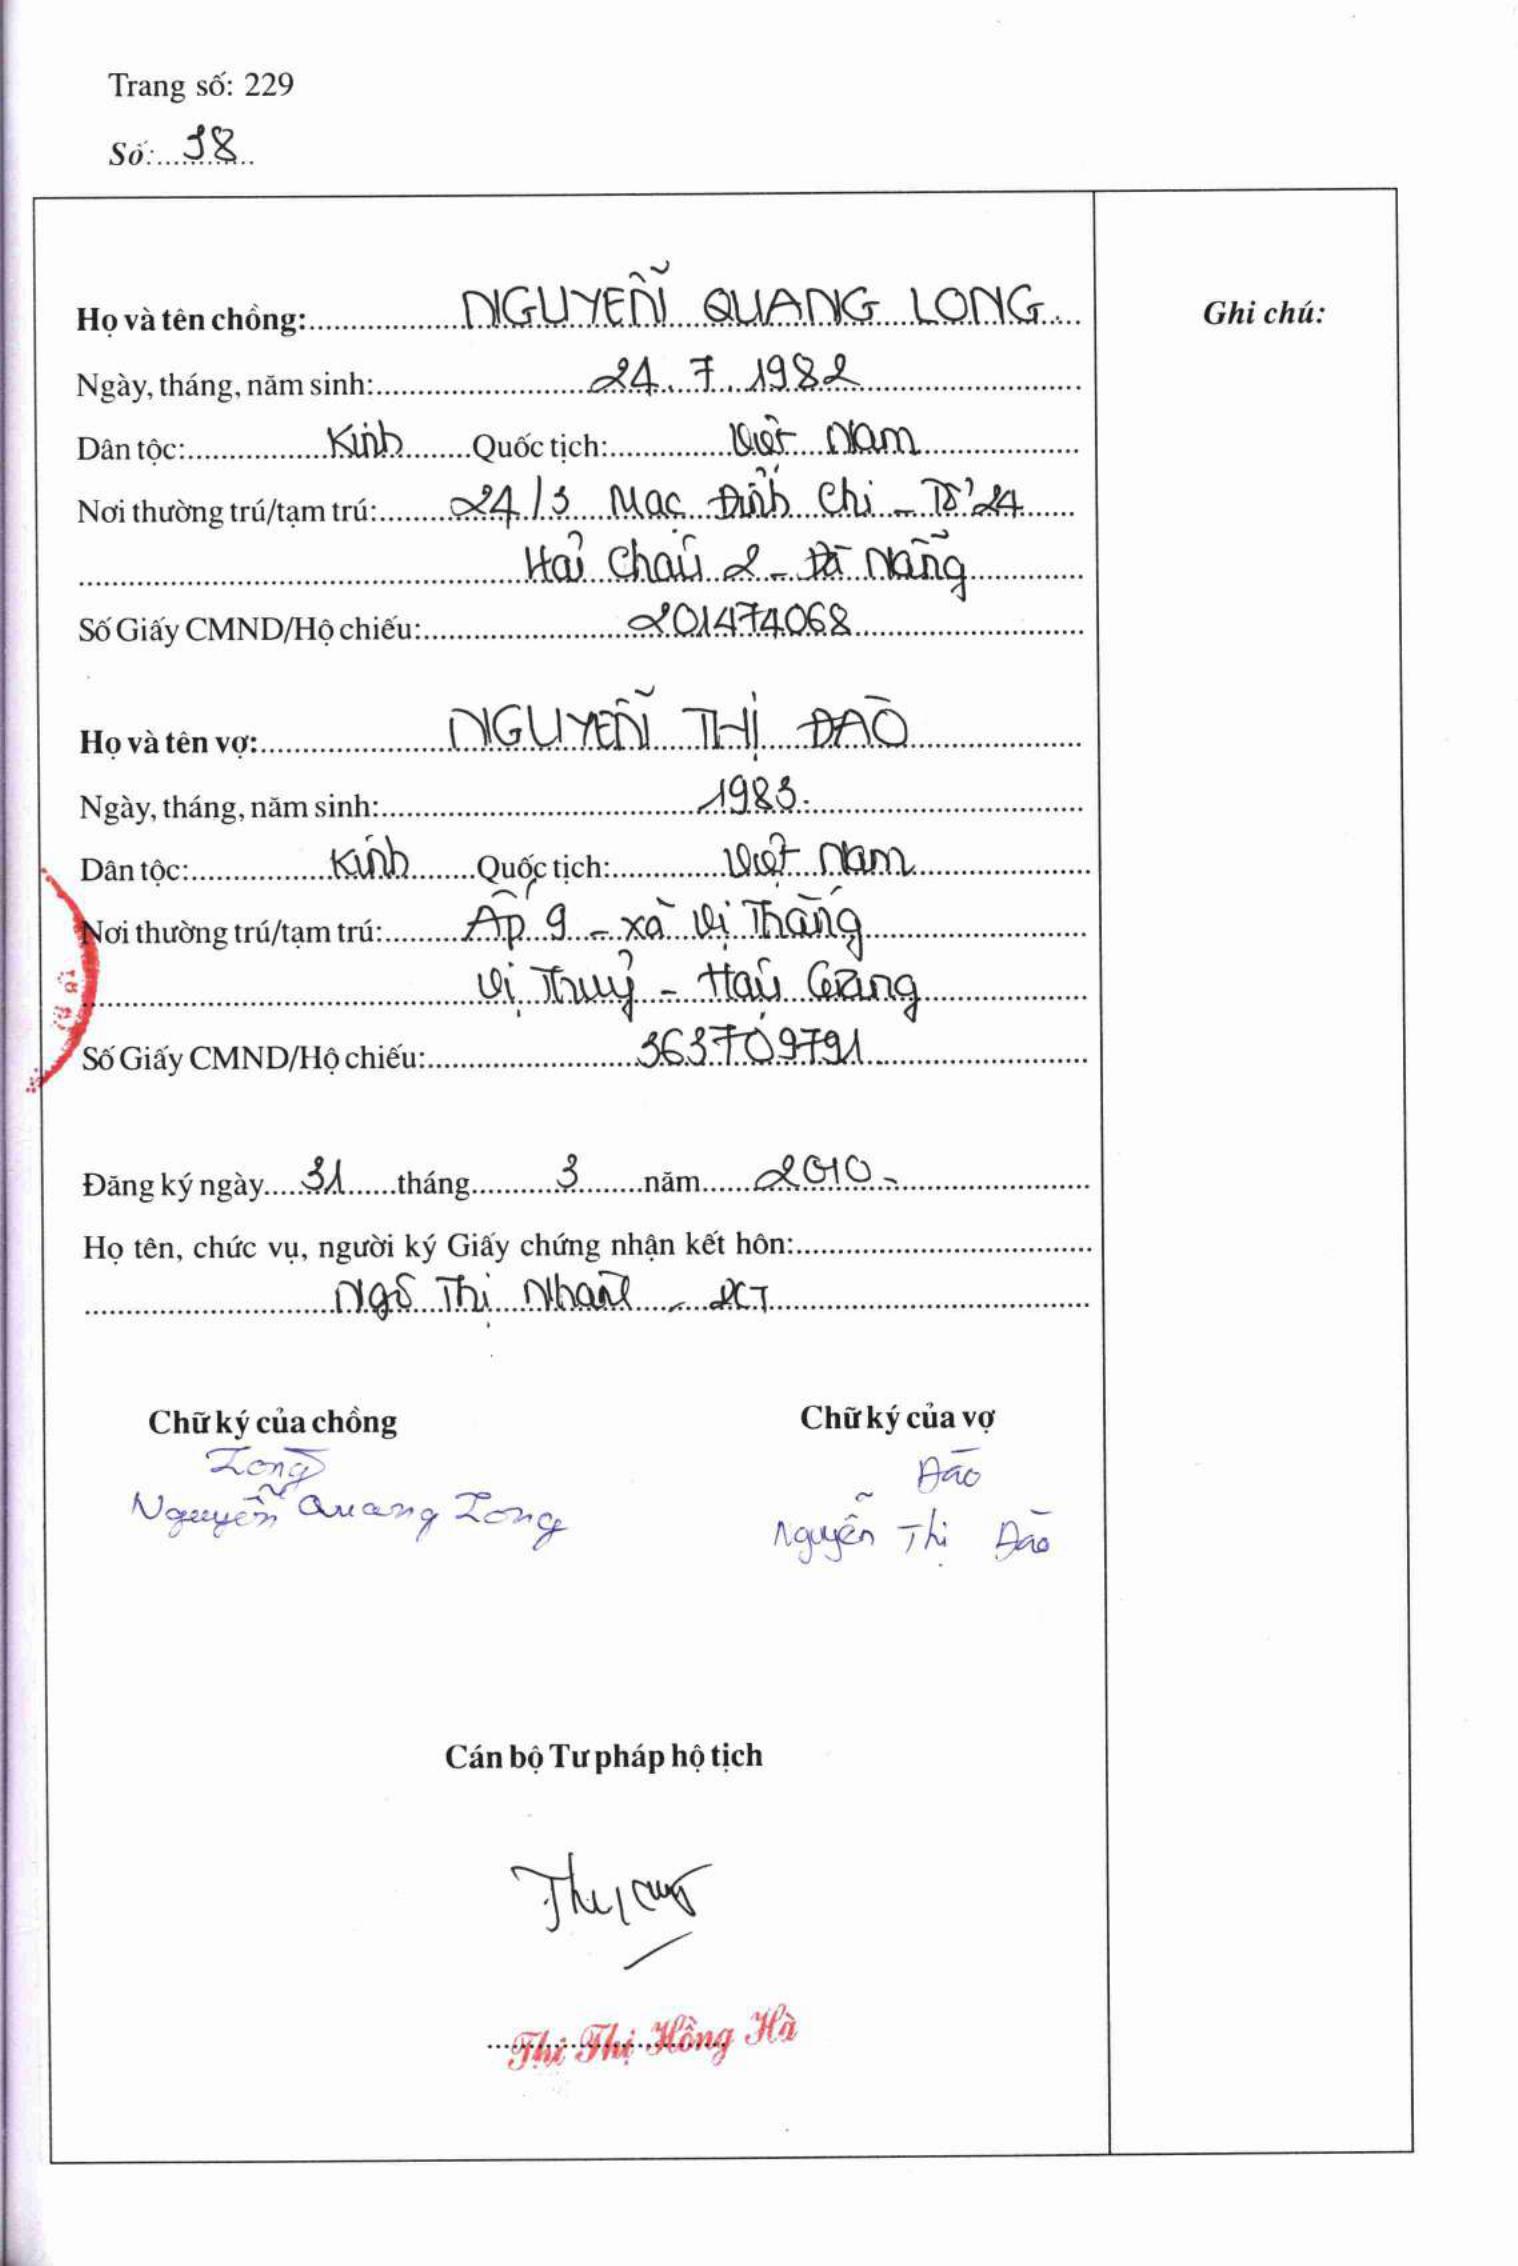 Trang số: 229
Số: 38
Họ và tên chồng: NGUYỄN QUANG LONG
Ghi chú:
Ngày, tháng, năm sinh: 24.7.1982
Dân tộc: Kinh Quốc tịch: Việt Nam
Nơi thường trú/tạm trú: 24/3 Mạc Đĩnh Chi - Tổ 24
Hải Châu 2 - Đà Nẵng
Số Giấy CMND/Hộ chiếu: 201474068
Họ và tên vợ: NGUYỄN THỊ ĐÀO
Ngày, tháng, năm sinh: 1983.
Dân tộc: Kinh Quốc tịch: Việt Nam
Nơi thường trú/tạm trú: Ấp 9 - xã Vị Thắng
Vị Thuỷ - Hậu Giang
Số Giấy CMND/Hộ chiếu: 363709791
Đăng ký ngày 31 tháng 3 năm 2010-
Họ tên, chức vụ, người ký Giấy chứng nhận kết hôn:
Ngô Thị Nhàn - PCT
Chữ ký của chồng Chữ ký của vợ
Long Đào
Nguyễn Quang Long Nguyễn Thị Đào
Cán bộ Tư pháp hộ tịch
Thị Hồng Hà